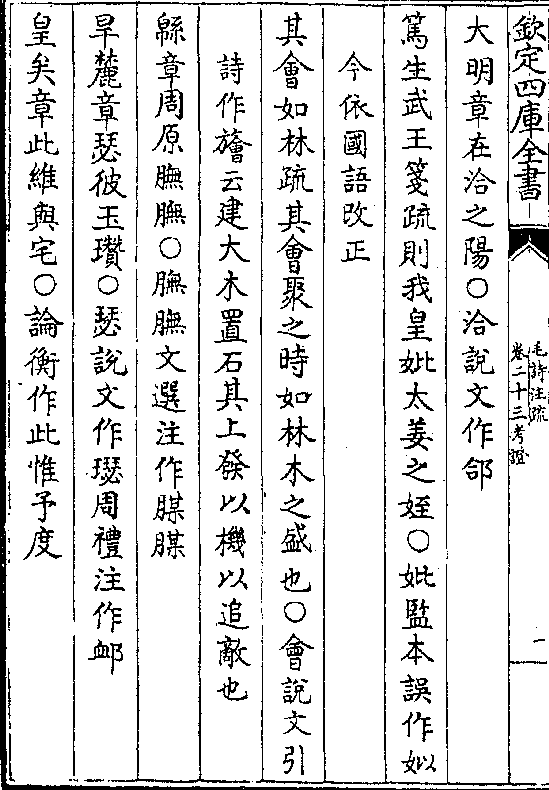 欽定四庫全書
毛詩注疏
卷二十三考證
一
大明章在洽之陽○洽說文作郃
篤生武王箋疏則我皇妣太姜之姪○妣監本誤作姒
今依國語改正
其會如林疏其會聚之時如林木之盛也○會說文引
詩作旝云建大木置石其上發以機以追敵也
緜章周原膴膴○膴膴文選注作腜腜
旱麓章瑟彼玉瓚○瑟說文作璱周禮注作卹
皇矣章此維與宅○論衡作此惟予度